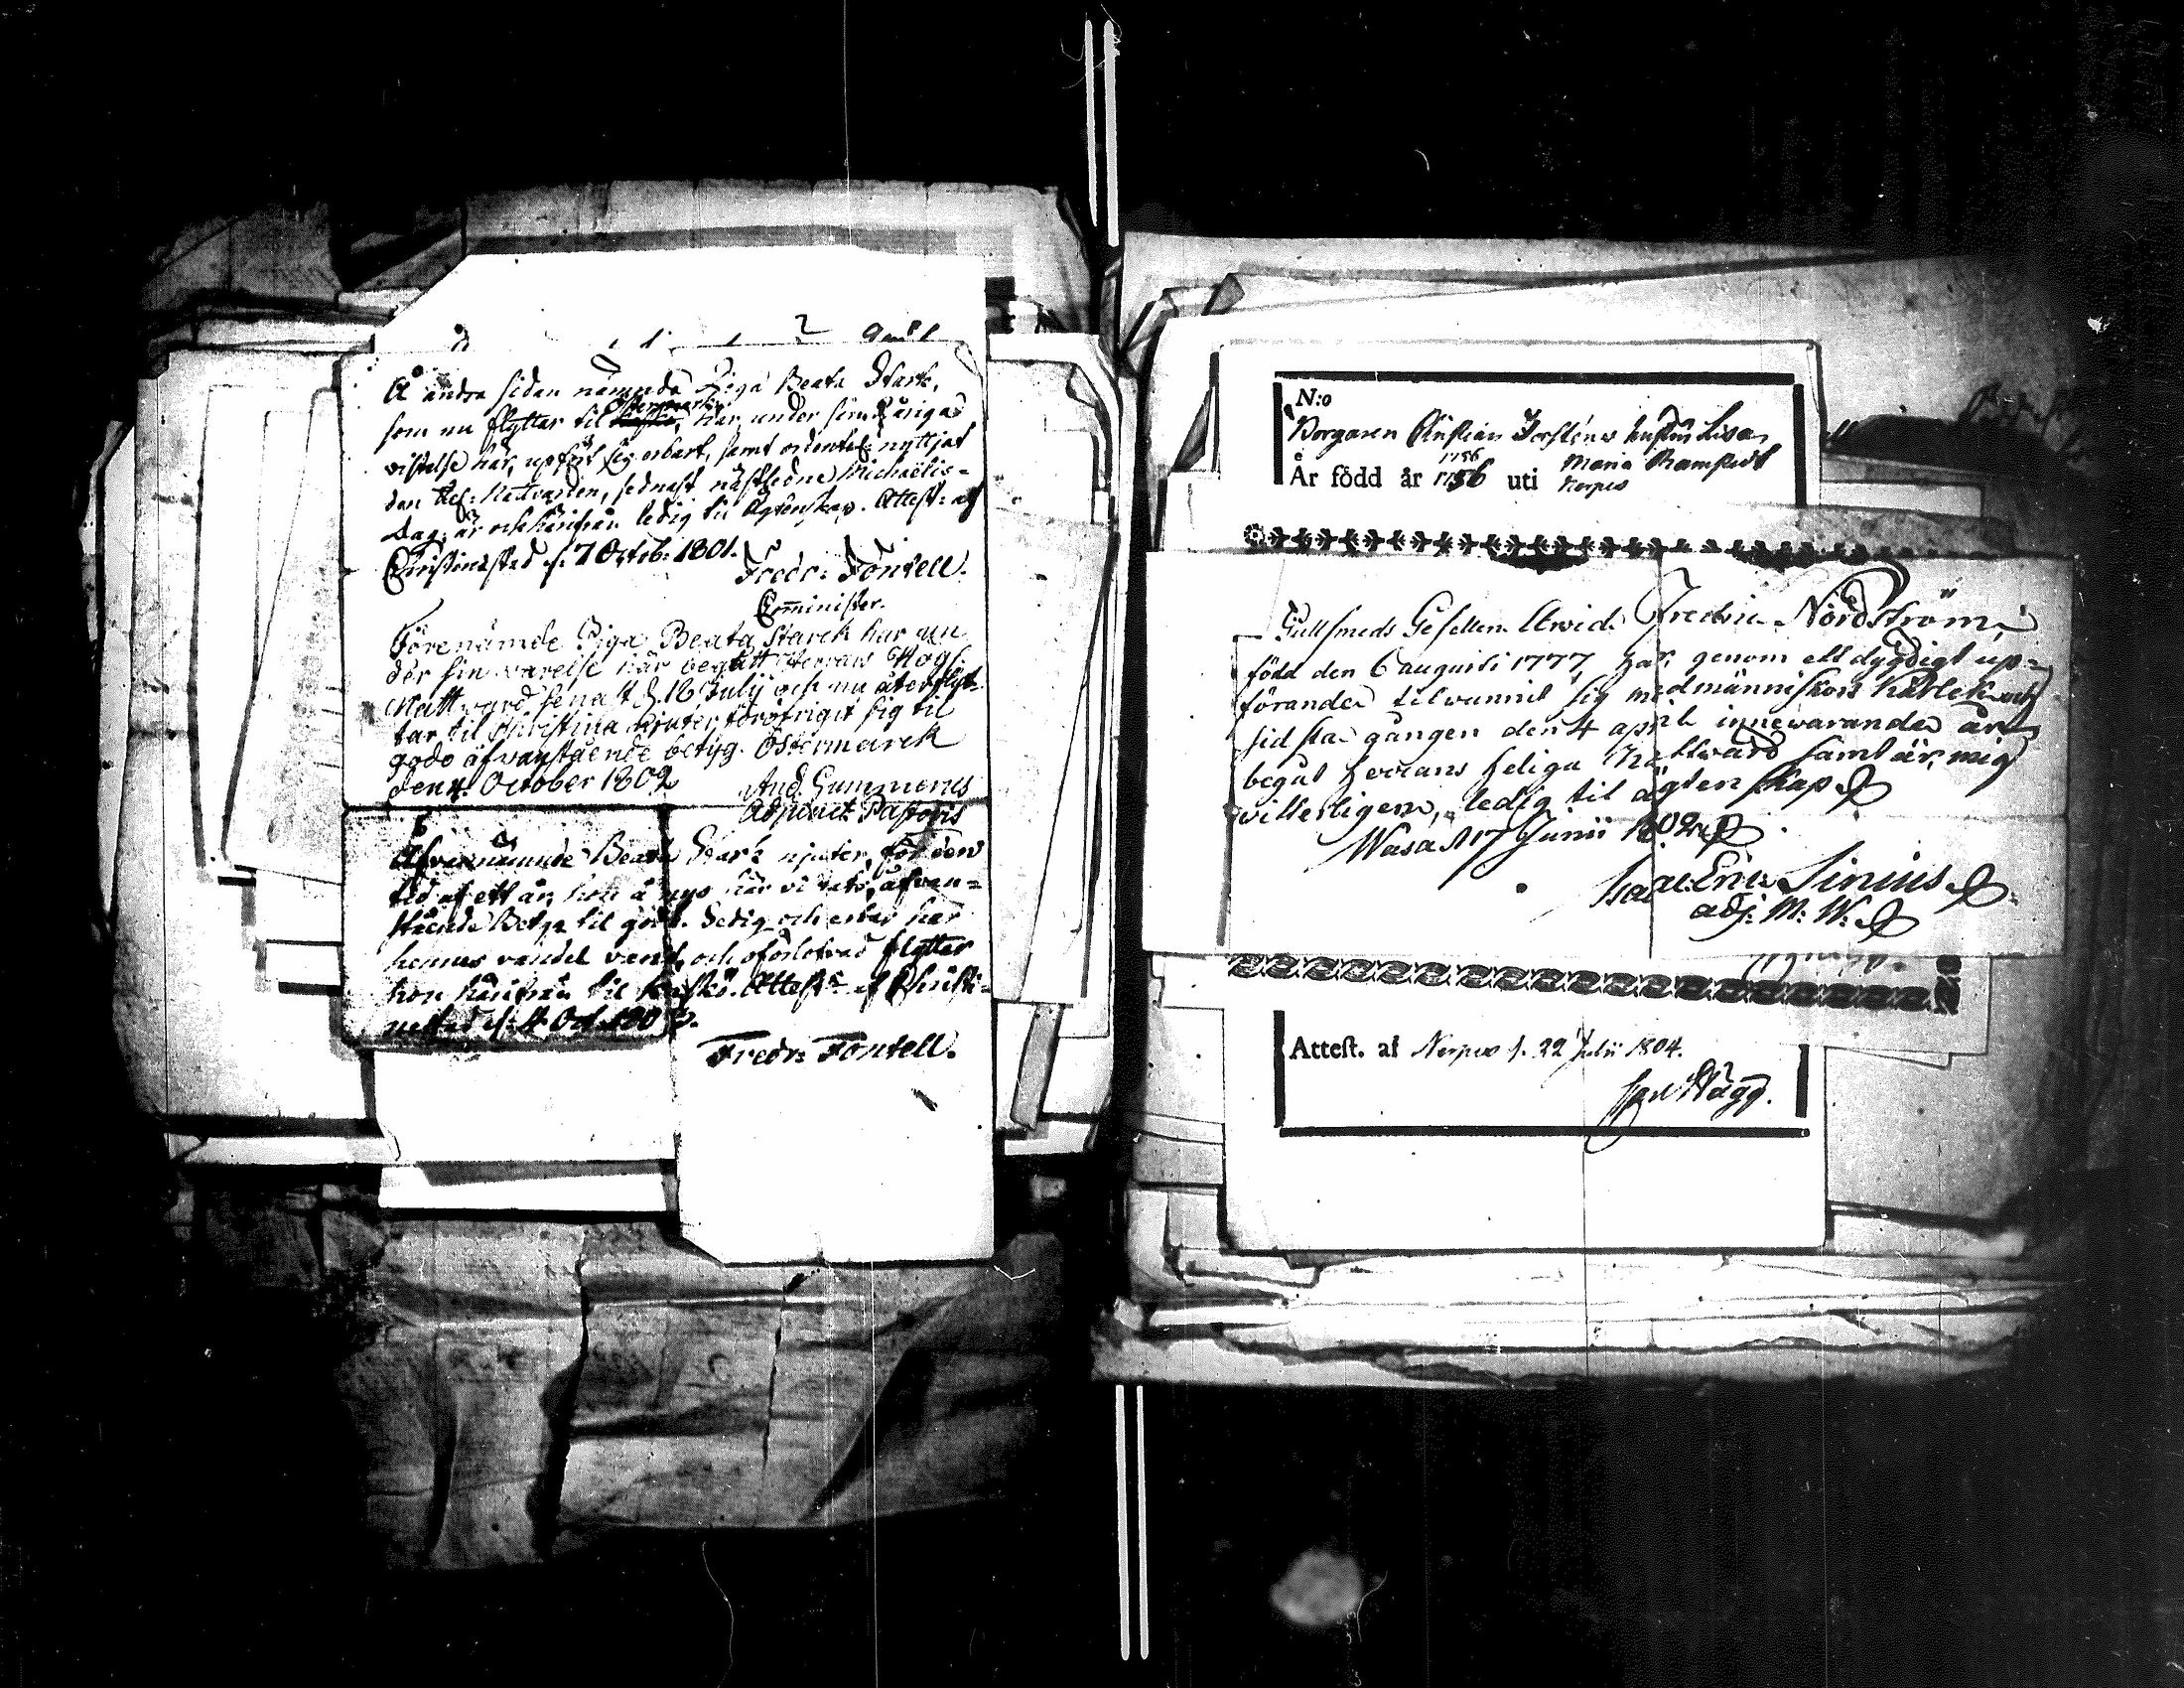 Å andra sidan nämnda Piga Beata Stark,
som nu flyttar til Östermark, har, under sin åriga
vistelse här, upfört sig erbart, samt ordentel: nyttjat
den Hel: Nattvarden, sednast nästledne Michaëlis-
Dag; är ock härifrån ledig til Ägtenskap. Attest: af
Christinestad d. 7 Octob: 1801.
Fredr: Fontell.
Comminister.
Förenämde Piga Beata Starck har un
der sin varelse här begått Herrans Högh
Nattvard senast d. 16 Julij och nu återflyt
tar til Christina njuter föröfrigit sig til
godo äfvanstående betyg. Östermarck
den 4 October 1802
And. Gummerus
Adjunct. Pastoris
Ofvannämnde Beata Stark njuter, för den
tid af ett år, hon å nyo här vistats, äfvan=
stående Betyg til godo. Sedig och erbar har
hennes vandel varit, och oförlofvad flyttar
hon härifrån til Kaskö. Attest: af Christi=
nestad d. 4 Oct. 180
Fredr: Fontell.
N:o
Borgaren Christian Forsténs hustru Lisa
Maria Ramstedt
1756
År född år 1756 uti Nerpes
Gullsmeds Gesellen Arvid Fredric Nordström,
född den 6 augusti 1777, har, genom ett dygdigt up=
förande tilvunnit sig medmänniskors kärlek och
sidsta gången den 4 april innevarande år
begått Herrans heliga Nattvard samt är, mig
vitterligen, ledig til ägtenskap
Wasa d 17 Junii 1802
Isaac Eric Sinius
adj. M: W.
Attest. af Nerpes d. 22 Julii 1804.
Hägg.